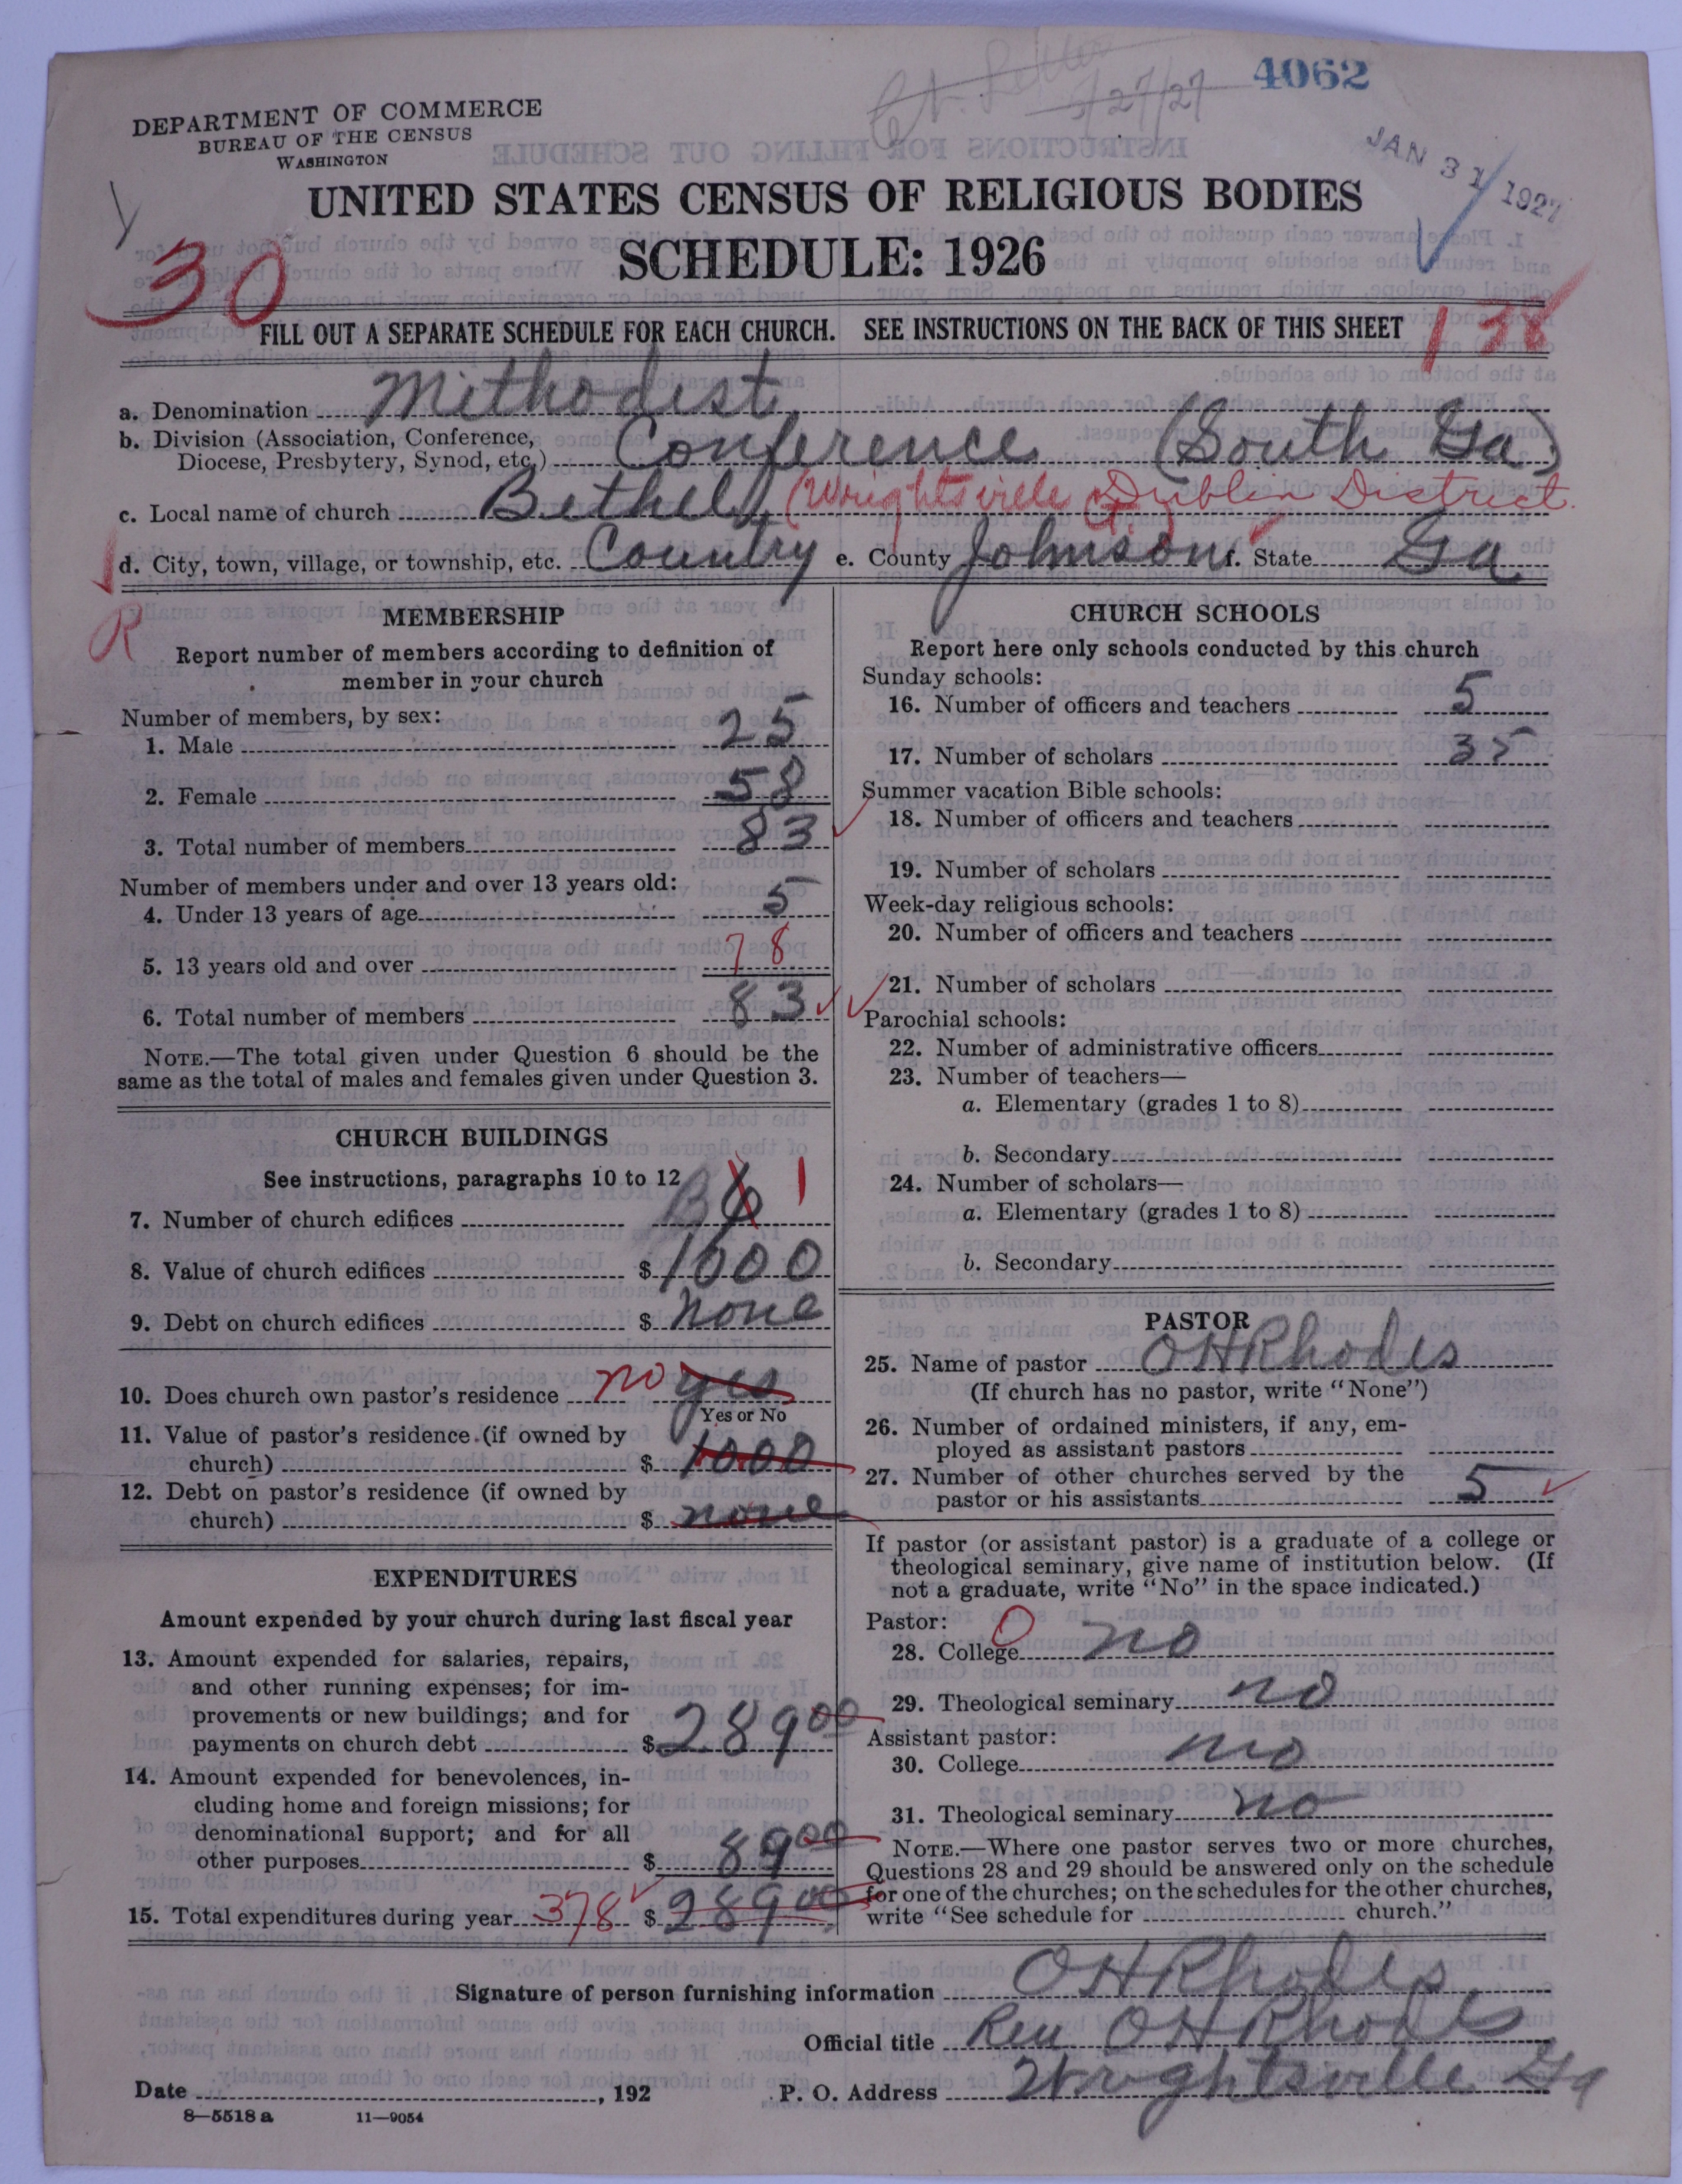 4062
5/27/27
DEPARTMENT OF COMMERCE
BUREAU OF THE CENSUS
WASHINGTON
JAN 31 1927
UNITED STATES CENSUS OF RELIGIOUS BODIES
SCHEDULE: 1926
30
FILL OUT A SEPARATE SCHEDULE FOR EACH CHURCH. SEE INSTRUCTIONS ON THE BACK OF THIS SHEET
138
a. Denomination Methodist
b. Division (Association, Conference,
Diocese, Presbytery, Synod, etc.) Conference (South Ga)
c. Local name of church Bethel (Wrightsville Ct.) Dublin District
d. City, town, village, or township, etc. Country e. County Johnson f. State Ga
R
MEMBERSHIP
Report number of members according to definition of
member in your church
Number of members, by sex:
1. Male 25
2. Female 58
3. Total number of members 83
Number of members under and over 13 years old:
4. Under 13 years of age 5
5. 13 years old and over 78
6. Total number of members 83
NOTE.—The total given under Question 6 should be the
same as the total of males and females given under Question 3.
CHURCH BUILDINGS
See instructions, paragraphs 10 to 12
7. Number of church edifices 6 1
8. Value of church edifices $ 1000
9. Debt on church edifices $ none
10. Does church own pastor's residence no yes
Yes or No
11. Value of pastor's residence (if owned by
church) $ 1000
12. Debt on pastor's residence (if owned by
church) $ none
EXPENDITURES
Amount expended by your church during last fiscal year
13. Amount expended for salaries, repairs,
and other running expenses; for im-
provements or new buildings; and for
payments on church debt $ 289 00
14. Amount expended for benevolences, in-
cluding home and foreign missions; for
denominational support; and for all
other purposes $ 89 00
15. Total expenditures during year 378 $ 289 00
CHURCH SCHOOLS
Report here only schools conducted by this church
Sunday schools:
16. Number of officers and teachers 5
17. Number of scholars 35
Summer vacation Bible schools:
18. Number of officers and teachers
19. Number of scholars
Week-day religious schools:
20. Number of officers and teachers
21. Number of scholars
Parochial schools:
22. Number of administrative officers
23. Number of teachers—
a. Elementary (grades 1 to 8)
b. Secondary
24. Number of scholars—
a. Elementary (grades 1 to 8)
b. Secondary
PASTOR
25. Name of pastor O H Rhodes
(If church has no pastor, write "None")
26. Number of ordained ministers, if any, em-
ployed as assistant pastors
27. Number of other churches served by the
pastor or his assistants 5
If pastor (or assistant pastor) is a graduate of a college or
theological seminary, give name of institution below. (If
not a graduate, write "No" in the space indicated.)
Pastor:
28. College O no
29. Theological seminary no
Assistant pastor:
30. College no
31. Theological seminary no
NOTE.—Where one pastor serves two or more churches,
Questions 28 and 29 should be answered only on the schedule
for one of the churches; on the schedules for the other churches,
write "See schedule for church."
Signature of person furnishing information O H Rhodes
Official title Rev O H Rhodes
Date , 192 P. O. Address Wrightsville Ga
8—5518 a 11—9054